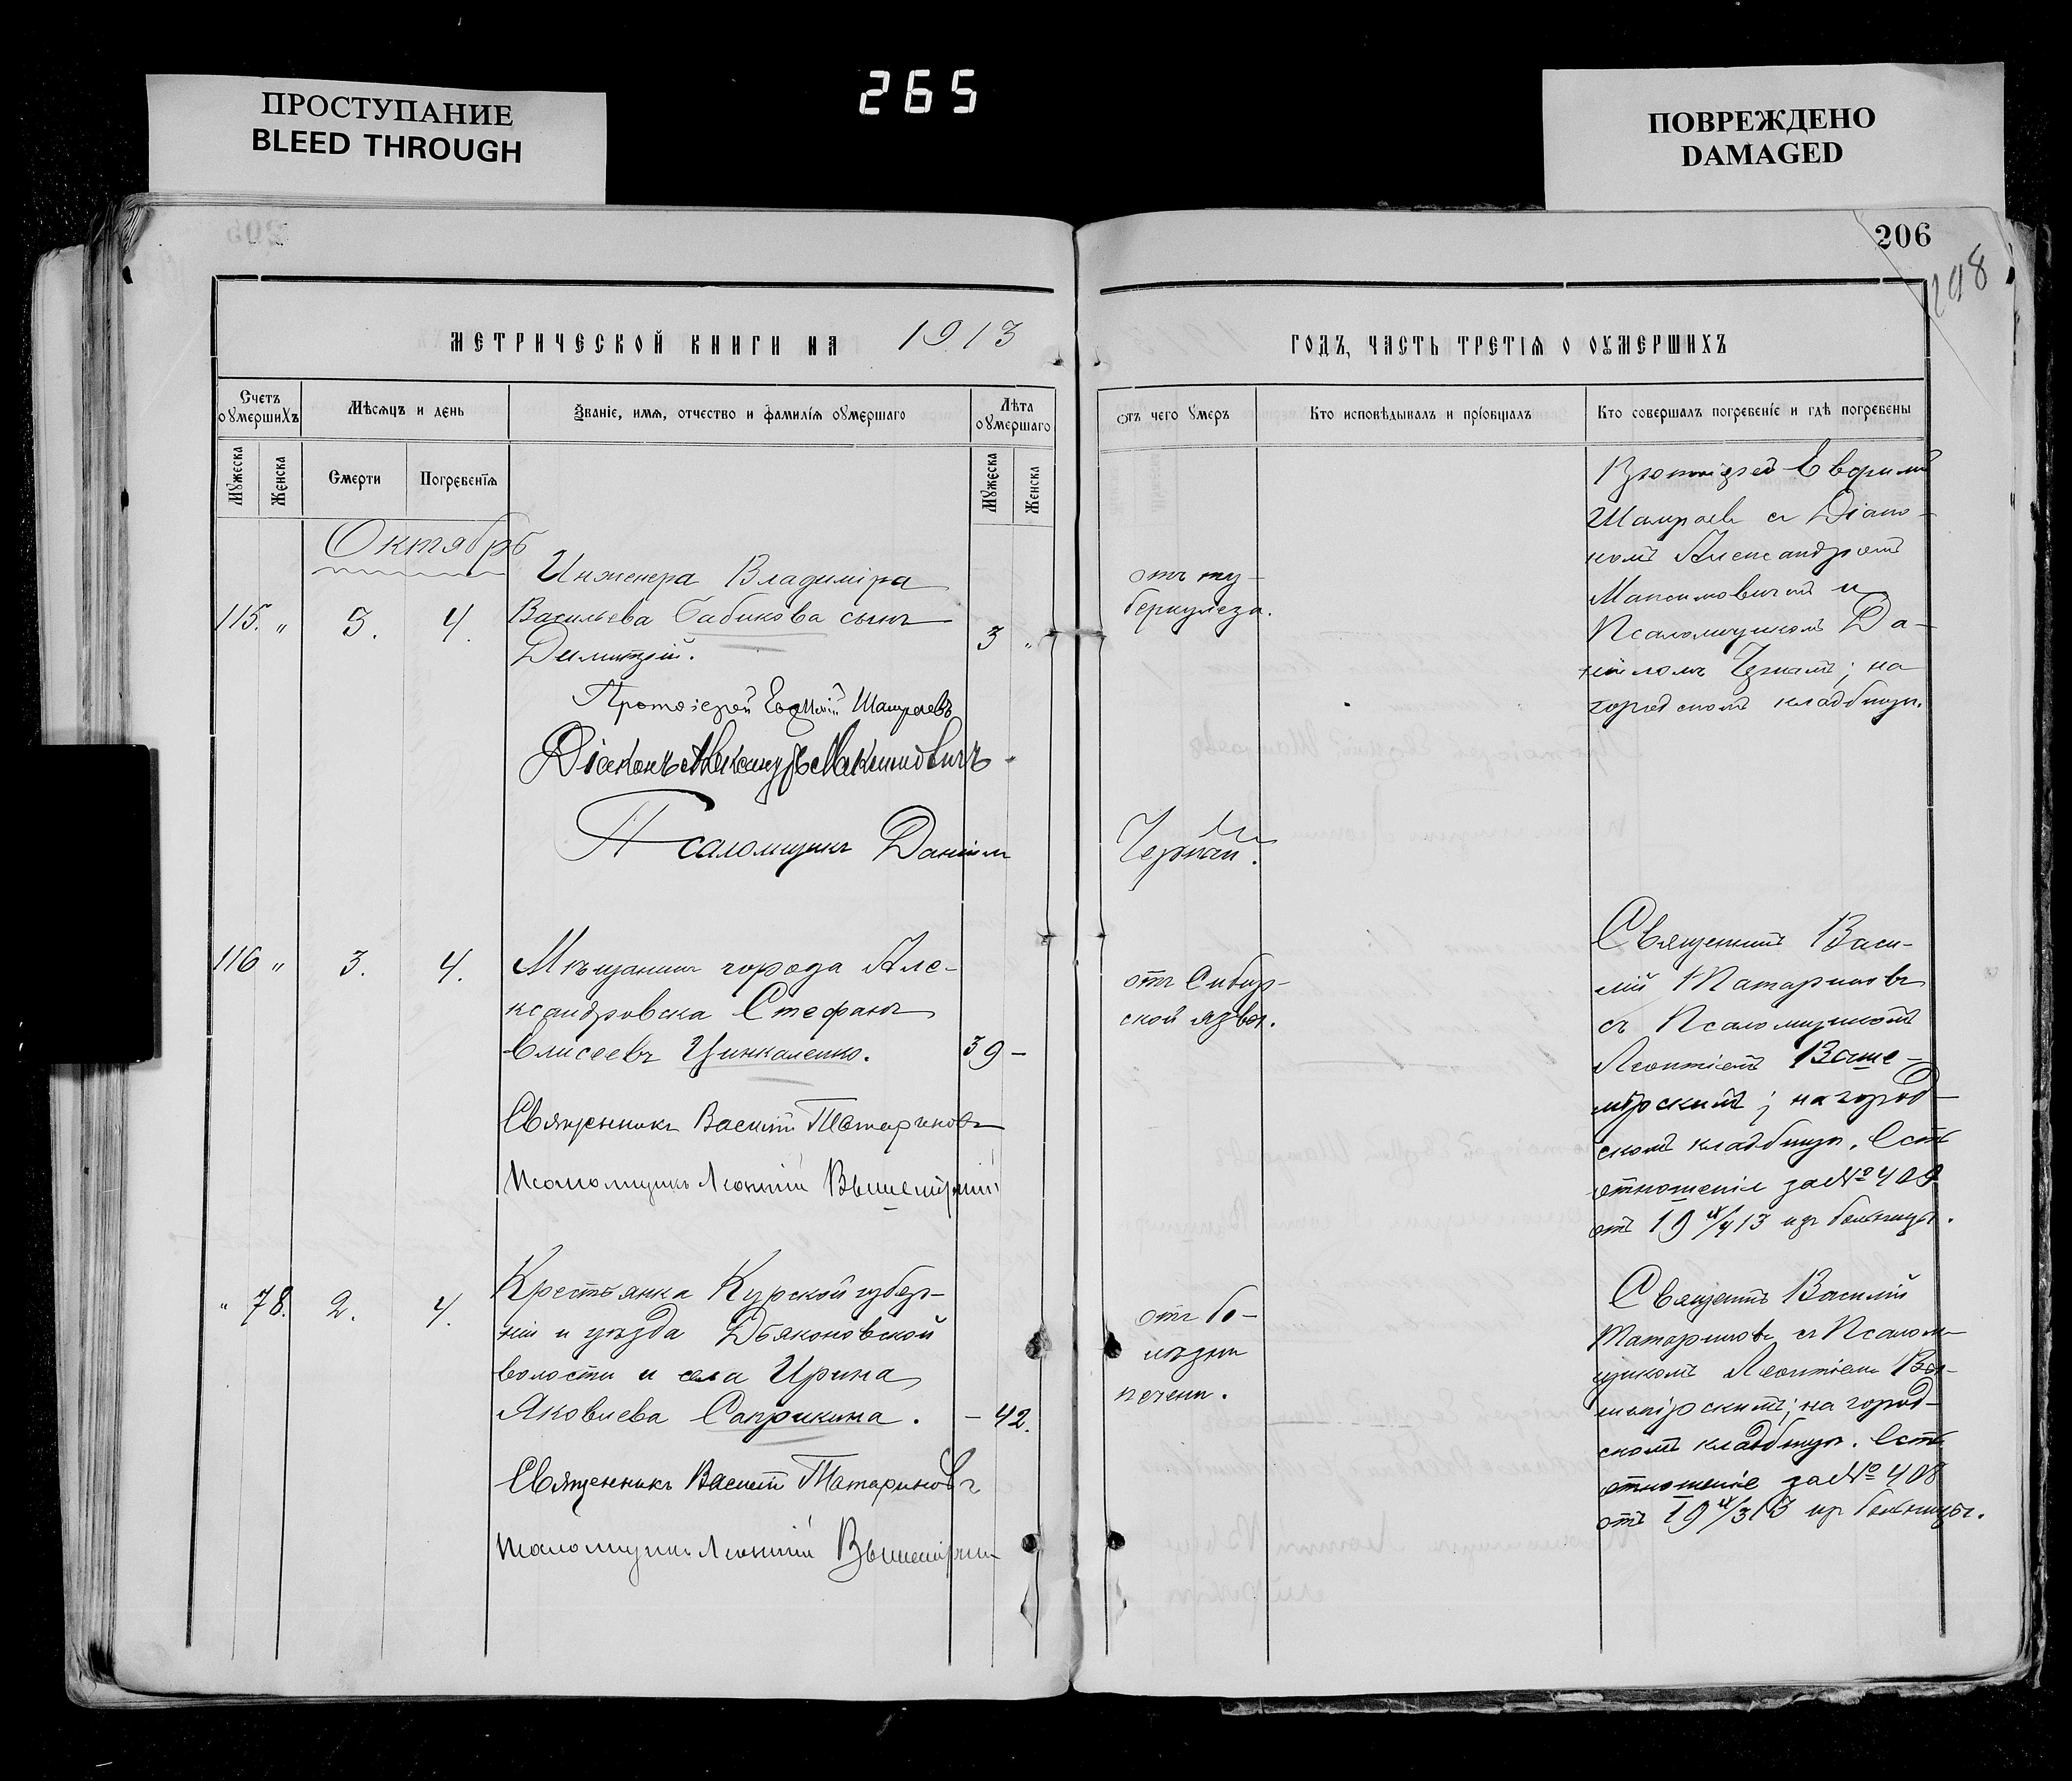 265
ПРОСТУПАНИЕ
BLEED THROUGH
ПОВРЕЖДЕНО
DAMAGED
206
МЕТРИЧЕСКОЙ КНИГИ НА 1913
Счетъ оумершихъ
Мѣсяцъ и день
Званіе, имя, отчество и фамилія оумершаго
Лѣта оумершаго
Мужеска
Женска
Смерти
Погребенія
Мужеска
Женска
Октябрь
115. „ 3. 4.
Инженера Владиміра
Васильева Бабикова сынъ
Димитрій. 3 „
Протоіерей Евфимій Шамраевъ
Діаконъ Александръ Максимовичъ
Псаломщикъ Даніилъ
116 „ 3. 4.
Мѣщанинъ города Але-
ксандровска Стефанъ
Елисеевъ Цинкаленко. 39 –
Священникъ Василій Татариновъ
Псаломщикъ Леонтій Вышемірскій
„ 78. 2. 4.
Крестьянка Курской губер-
ніи и уѣзда Дьяконовской
волости и села Ирина
Яковлева Саприкина. – 42.
Священникъ Василій Татариновъ
Псаломщикъ Леонтій
ГОДЪ, ЧАСТЬ ТРЕТІЯ О ОУМЕРШИХЪ
отъ чего умеръ
Кто исповѣдывалъ и пріобщалъ
Кто совершалъ погребеніе и гдѣ погребены
отъ ту-
беркулеза.
Протоіерей Евфимій
Шамраевъ съ Діако-
номъ Александромъ
Максимовичемъ и
Псаломщикомъ Да-
ніиломъ на
городскомъ кладбищѣ.
отъ Сибир-
ской язвы.
Священникъ Васи-
лій Татариновъ
съ Псаломщикомъ
Леонтіемъ Выше-
мірскимъ; на город-
скомъ кладбищѣ. Есть
отношеніе за № 409
отъ 19 13 изъ больницы.
отъ бо-
лѣзни
печени.
Василій
Татариновъ съ Псалом-
щикомъ Леонтіемъ Вы-
шемірскимъ; на город-
скомъ кладбищѣ. Есть
отношеніе за № 408
отъ 19 13 изъ больницы.